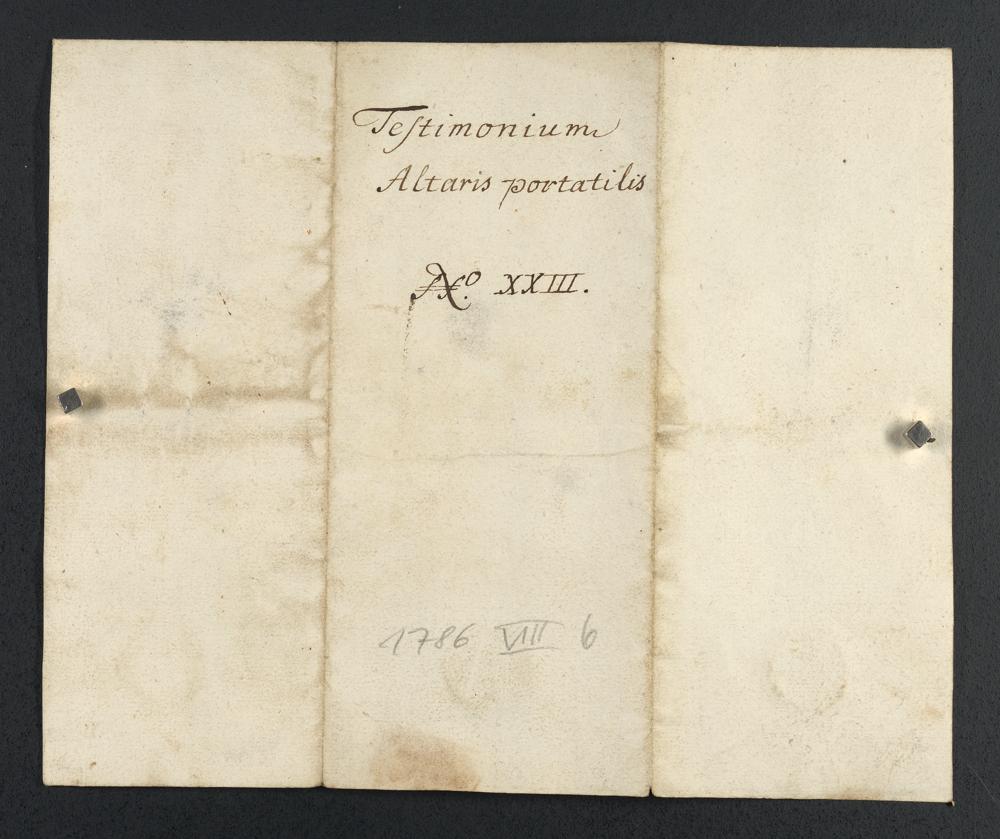 Teſtimonium
Altaris portatilis
No. XXIII.
1786 VIII 6